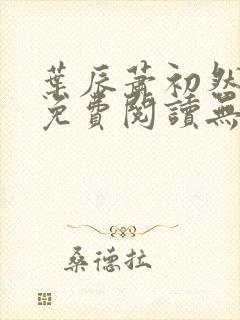 葉辰蕭初然
免費閱讀無
桑德拉